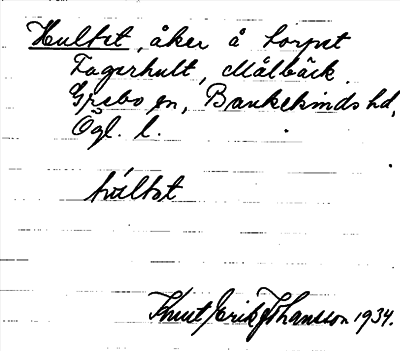 Hultet, åker å torpet
Fagerhult, Målbäck
Grebo sn, Bankekinds hd,
Ögl. l.
húltet
Knut Erik Johansson 1934.